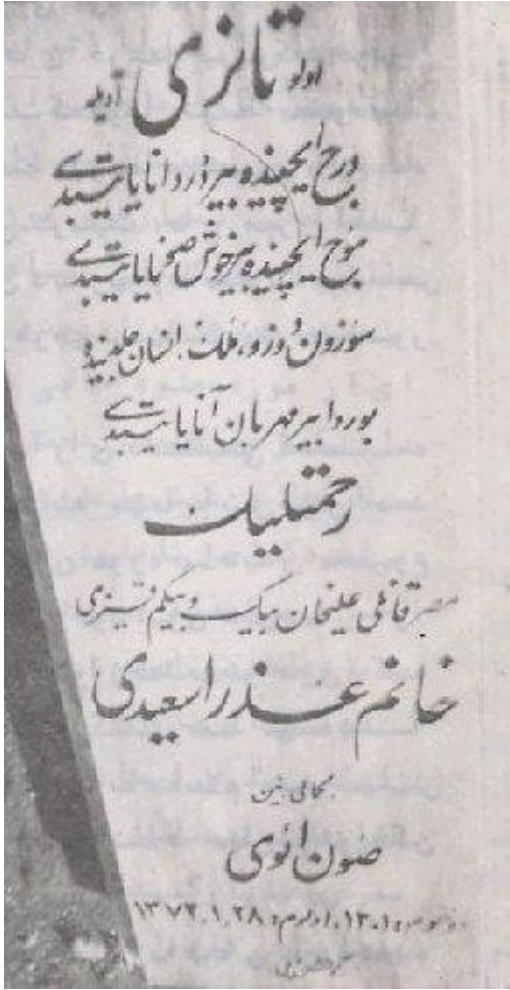 اولو تانری آدیله
درج ایچینده بیر دُر دانا یاتیبدی
موج ایچینده بیر خوش صخمایا یاتیبدی
سوزون دوزو، ملک انسان جلدینده
بوردا بیر مهربان آنا یاتیبدی
رحمتلیک
قانلی علیخان بیک و بیگم قیزی
خانم عذرا سعیدی
صون ائوی
۱۳۰۱، اولوم: ۱۳۷۲.۱.۲۸